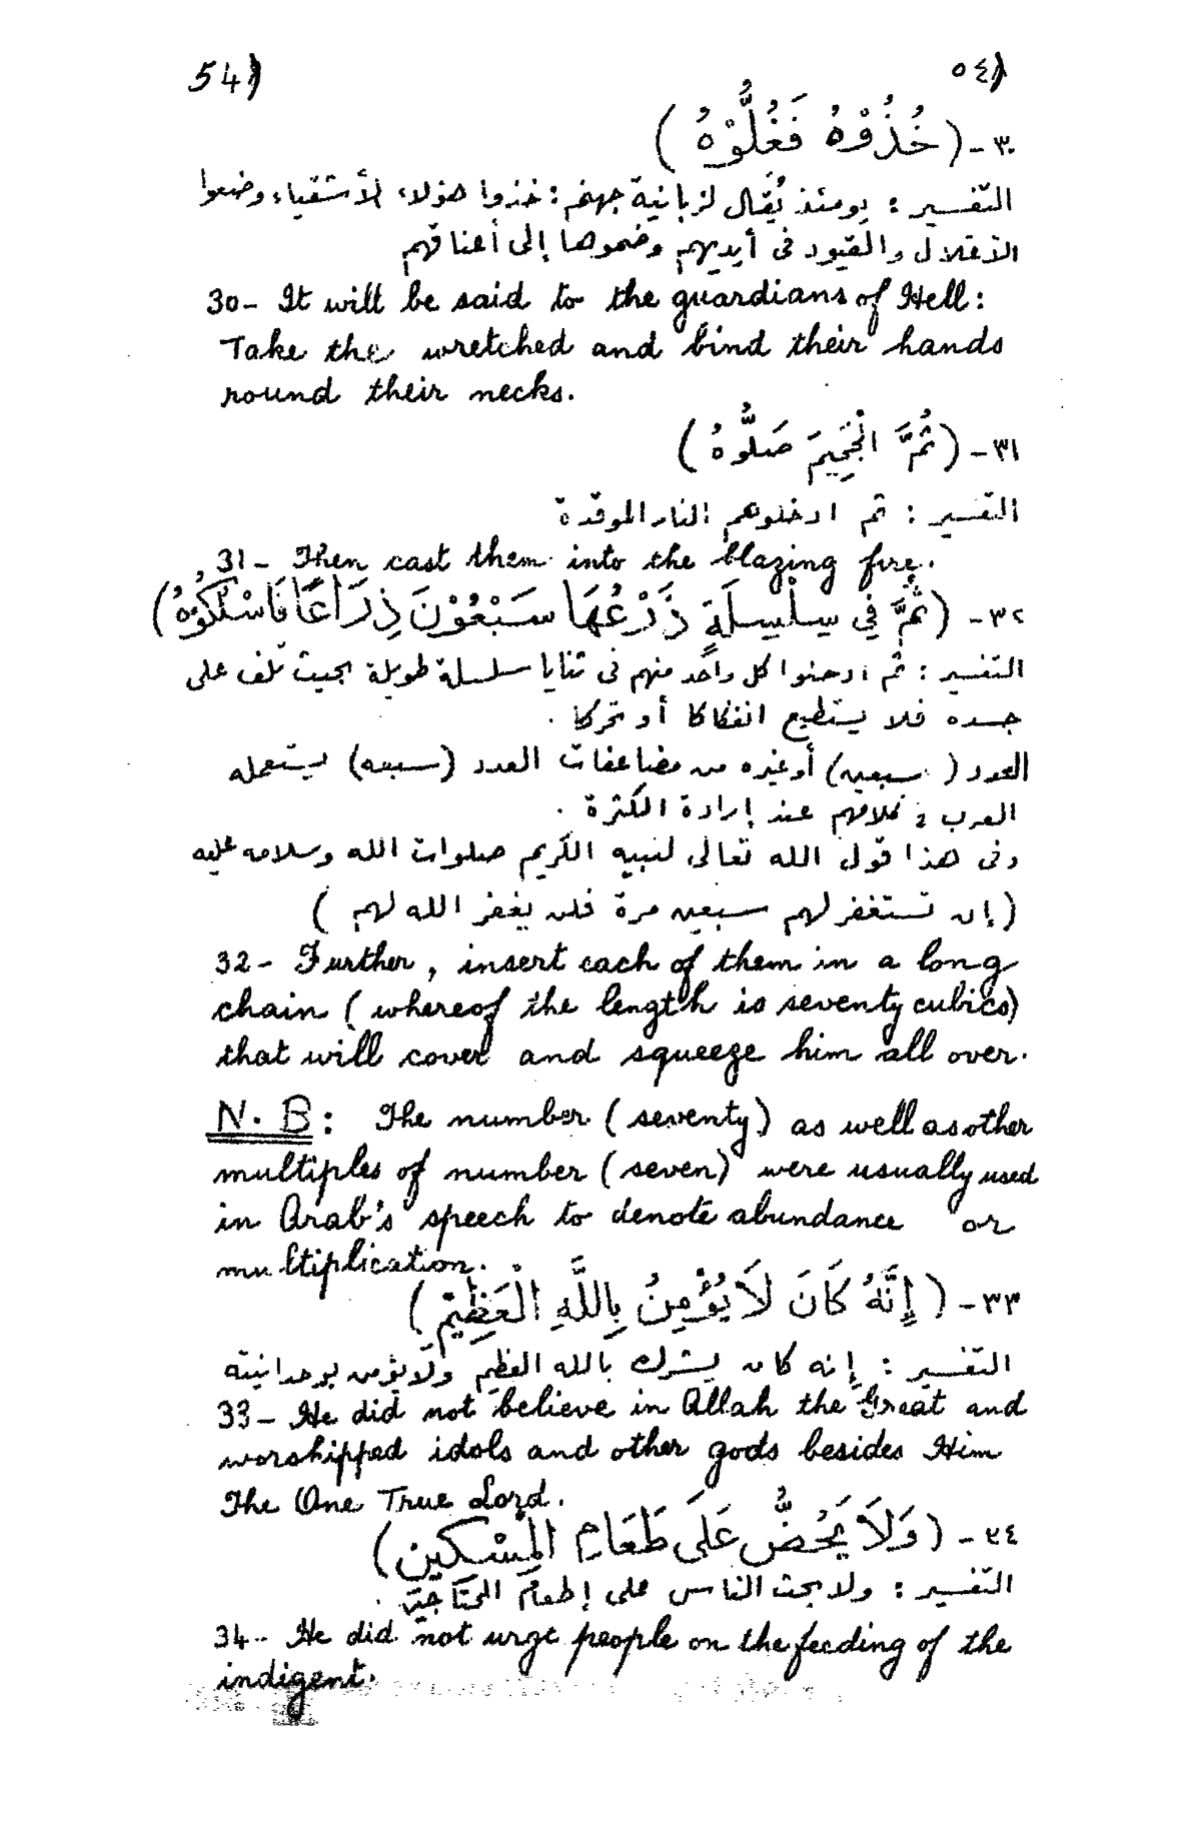 54) ٥٤)
٣٠- (خُذُوْهُ فَغُلُّوْهُ)
التفسير : يومئذ يُقال لزبانية جهنم : خذوا هؤلاء الأشقياء وضعوا
الأغلال والقيود فى أيديهم وضموها إلى أعناقهم
30- It will be said to the guardians of Hell:
Take the wretched and bind their hands
round their necks.
٣١- (ثُمَّ الْجَحِيمَ صَلُّوهُ)
التفسير : ثم ادخلوهم النار الموقدة
31- Then cast them into the blazing fire.
٣٢- (ثُمَّ فِي سِلْسِلَةٍ ذَرْعُهَا سَبْعُوْنَ ذِرَاعًا فَاسْلُكُوْهُ)
التفسير : ثم ادخلوا كل واحد منهم فى ثنايا سلسلة طويلة بحيث تلف على
جسده فلا يستطيع انفكاكا أو تحركا .
العدد ( سبعين) أو غيره من مضاعفات العدد (سبعه) يستعمله
العرب فى كلامهم عند إرادة الكثرة .
وفى هذا قول الله تعالى لنبيه الكريم صلوات الله وسلامه عليه
(إن تستغفر لهم سبعين مرة فلن يغفر الله لهم )
32- Further, insert each of them in a long
chain (whereof the length is seventy cubics)
that will cover and squeeze him all over.
N.B: The number (seventy) as well as other
multiples of number (seven) were usually used
in Arab's speech to denote abundance or
multiplication.
٣٣- (إِنَّهُ كَانَ لَا يُؤْمِنُ بِاللَّهِ الْعَظِيْمِ)
التفسير : إنه كان يشرك بالله العظيم ولا يؤمن بوحدانيته
33- He did not believe in Allah the Great and
worshipped idols and other gods besides Him
The One True Lord.
٣٤- (وَلَا يَحُضُّ عَلَى طَعَامِ الْمِسْكِينِ)
التفسير : ولا يحث الناس على إطعام المحتاجين .
34- He did not urge people on the feeding of the
indigent.